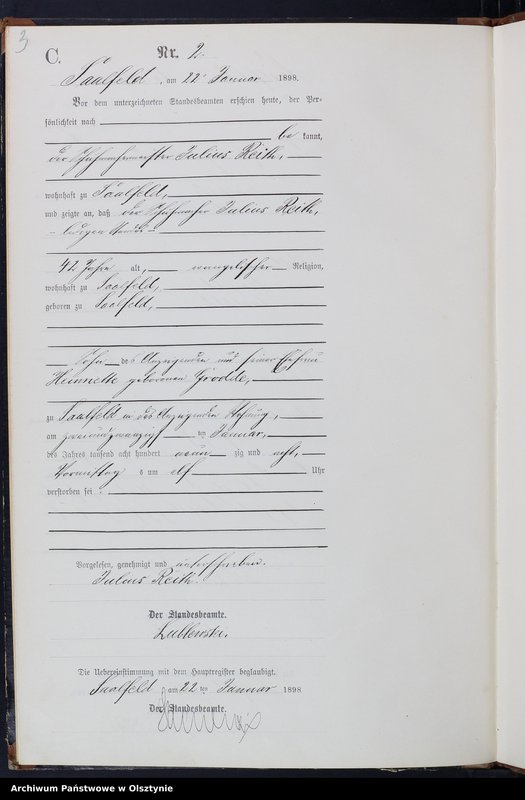 3
C.
Nr. 2.
Saalfeld, am 22ᵗ Januar 1898.
Vor dem unterzeichneten Standesbeamten erschien heute, der Per-
sönlichkeit nach
be kannt,
der Schuhmachermeister Julius Reith,
wohnhaft zu Saalfeld,
und zeigte an, daß der Schuhmacher Julius Reith,
- ledigen Standes -
42 Jahre alt, evangelischer Religion,
wohnhaft zu Saalfeld,
geboren zu Saalfeld,
Sohn des Anzeigenden und seiner Ehefrau
Henriette geborenen Grodde,
zu Saalfeld in des Anzeigenden Wohnung,
am zweiundzwanzigsten Januar,
des Jahres tausend acht hundert neun zig und acht,
Vormittag s um elf Uhr
verstorben sei.
Vorgelesen, genehmigt und unterschrieben.
Julius Reith.
Der Standesbeamte.
Lublewski.
Die Uebereinstimmung mit dem Hauptregister beglaubigt.
Saalfeld, am 22 ten Januar 1898
Der Standesbeamte.
Archiwum Państwowe w Olsztynie